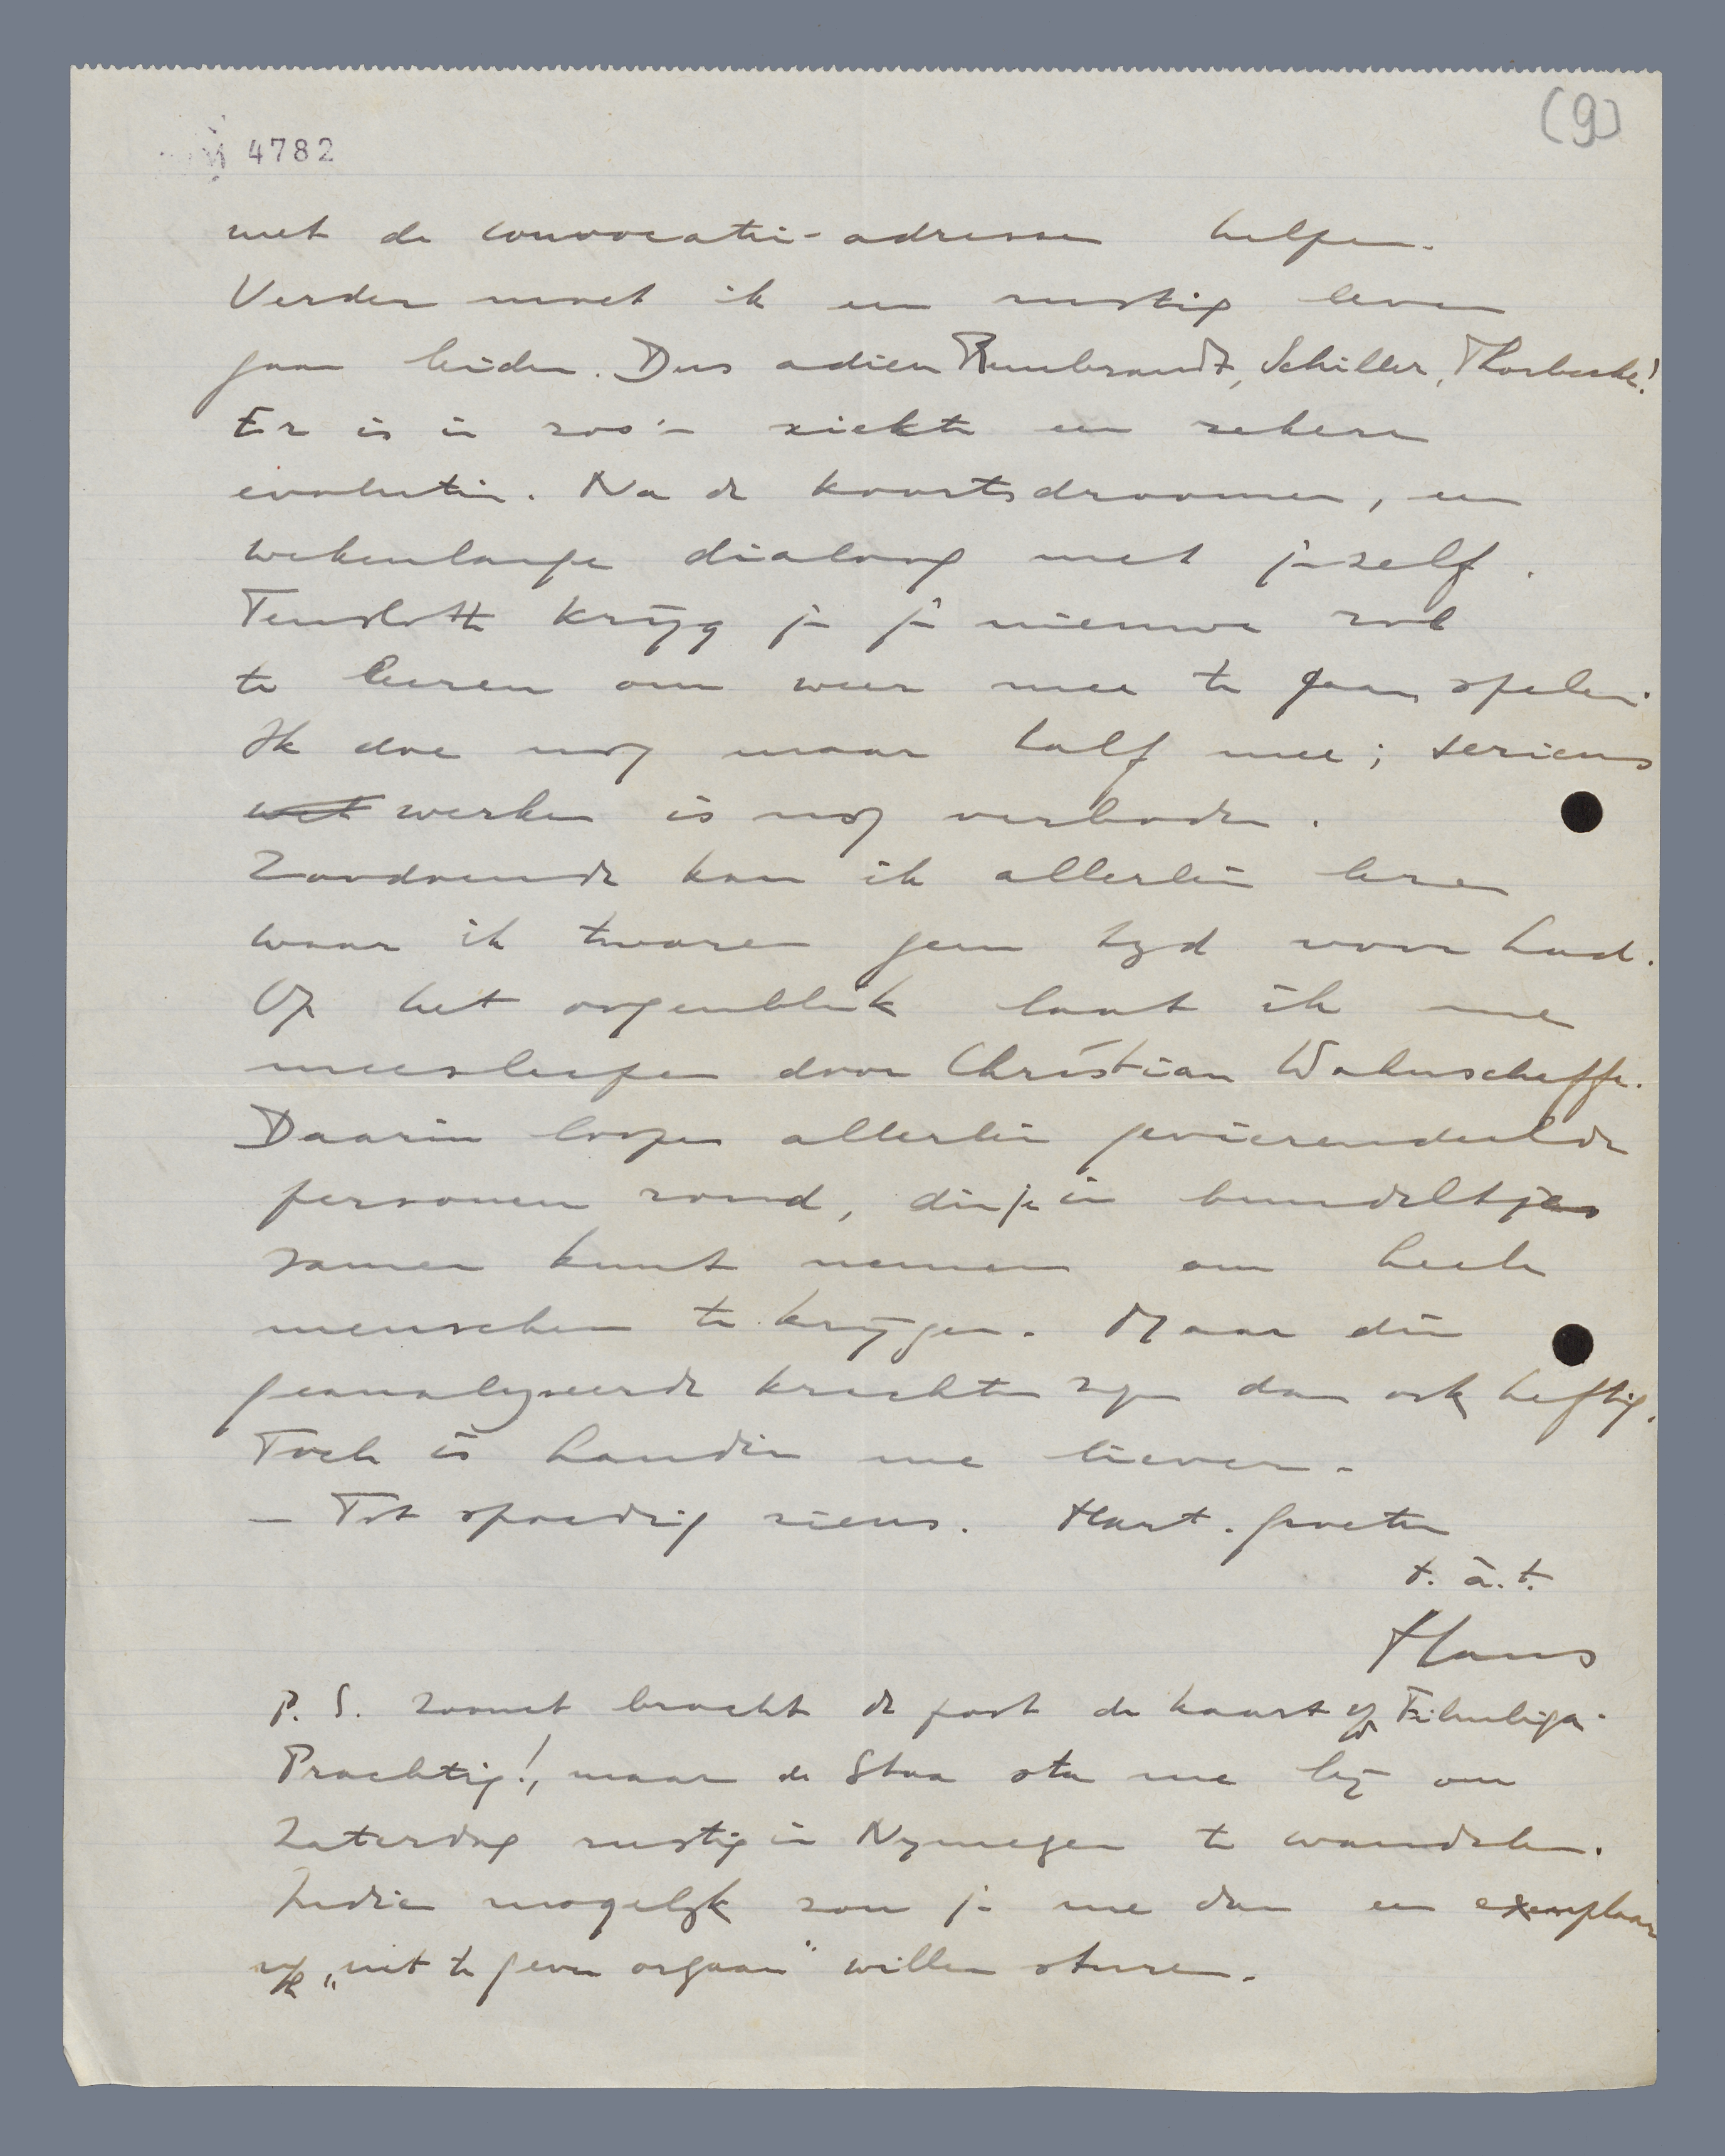 4782
(9)
met de convocatie-adressen helpen.
Verder moet ik een rustig leven
gaan leiden. Dus adieu Rembrandt, Schiller, Thorbecke!
Er is in zoo'n ziekte een zekere
evolutie. Na de koortsdroomen, een
wekenlange dialoog met jezelf.
Tenslotte krijg je je nieuwe rol
te leeren om weer mee te gaan spelen.
Ik doe nog maar half mee; serieus
wet werken is nog verboden.
Zoodoende kan ik allerlei lezen
waar ik tevoren geen tyd voor had.
Op het oogenblik laat ik me
meesleepen door Christian Wahnschaffe.
Daarin loopen allerlei gevierendeelde
personen rond, die je in bundeltjes
samen kunt nemen om heele
menschen te krijgen. Maar die
geanalyseerde krachten zyn dan ook heftig.
Toch is Laudin me liever.
— Tot spoedig ziens. Hart. groeten
t. à. t.
Hans
P. S. Zoonet bracht de post de kaart Filmliga.
Prachtig!, maar de Staa sta me bij om
Zaterdag rustig in Nymegen te wandelen.
Indien mogelyk zou je me dan een exemplaar
"uit te geven orgaan" willen sturen.